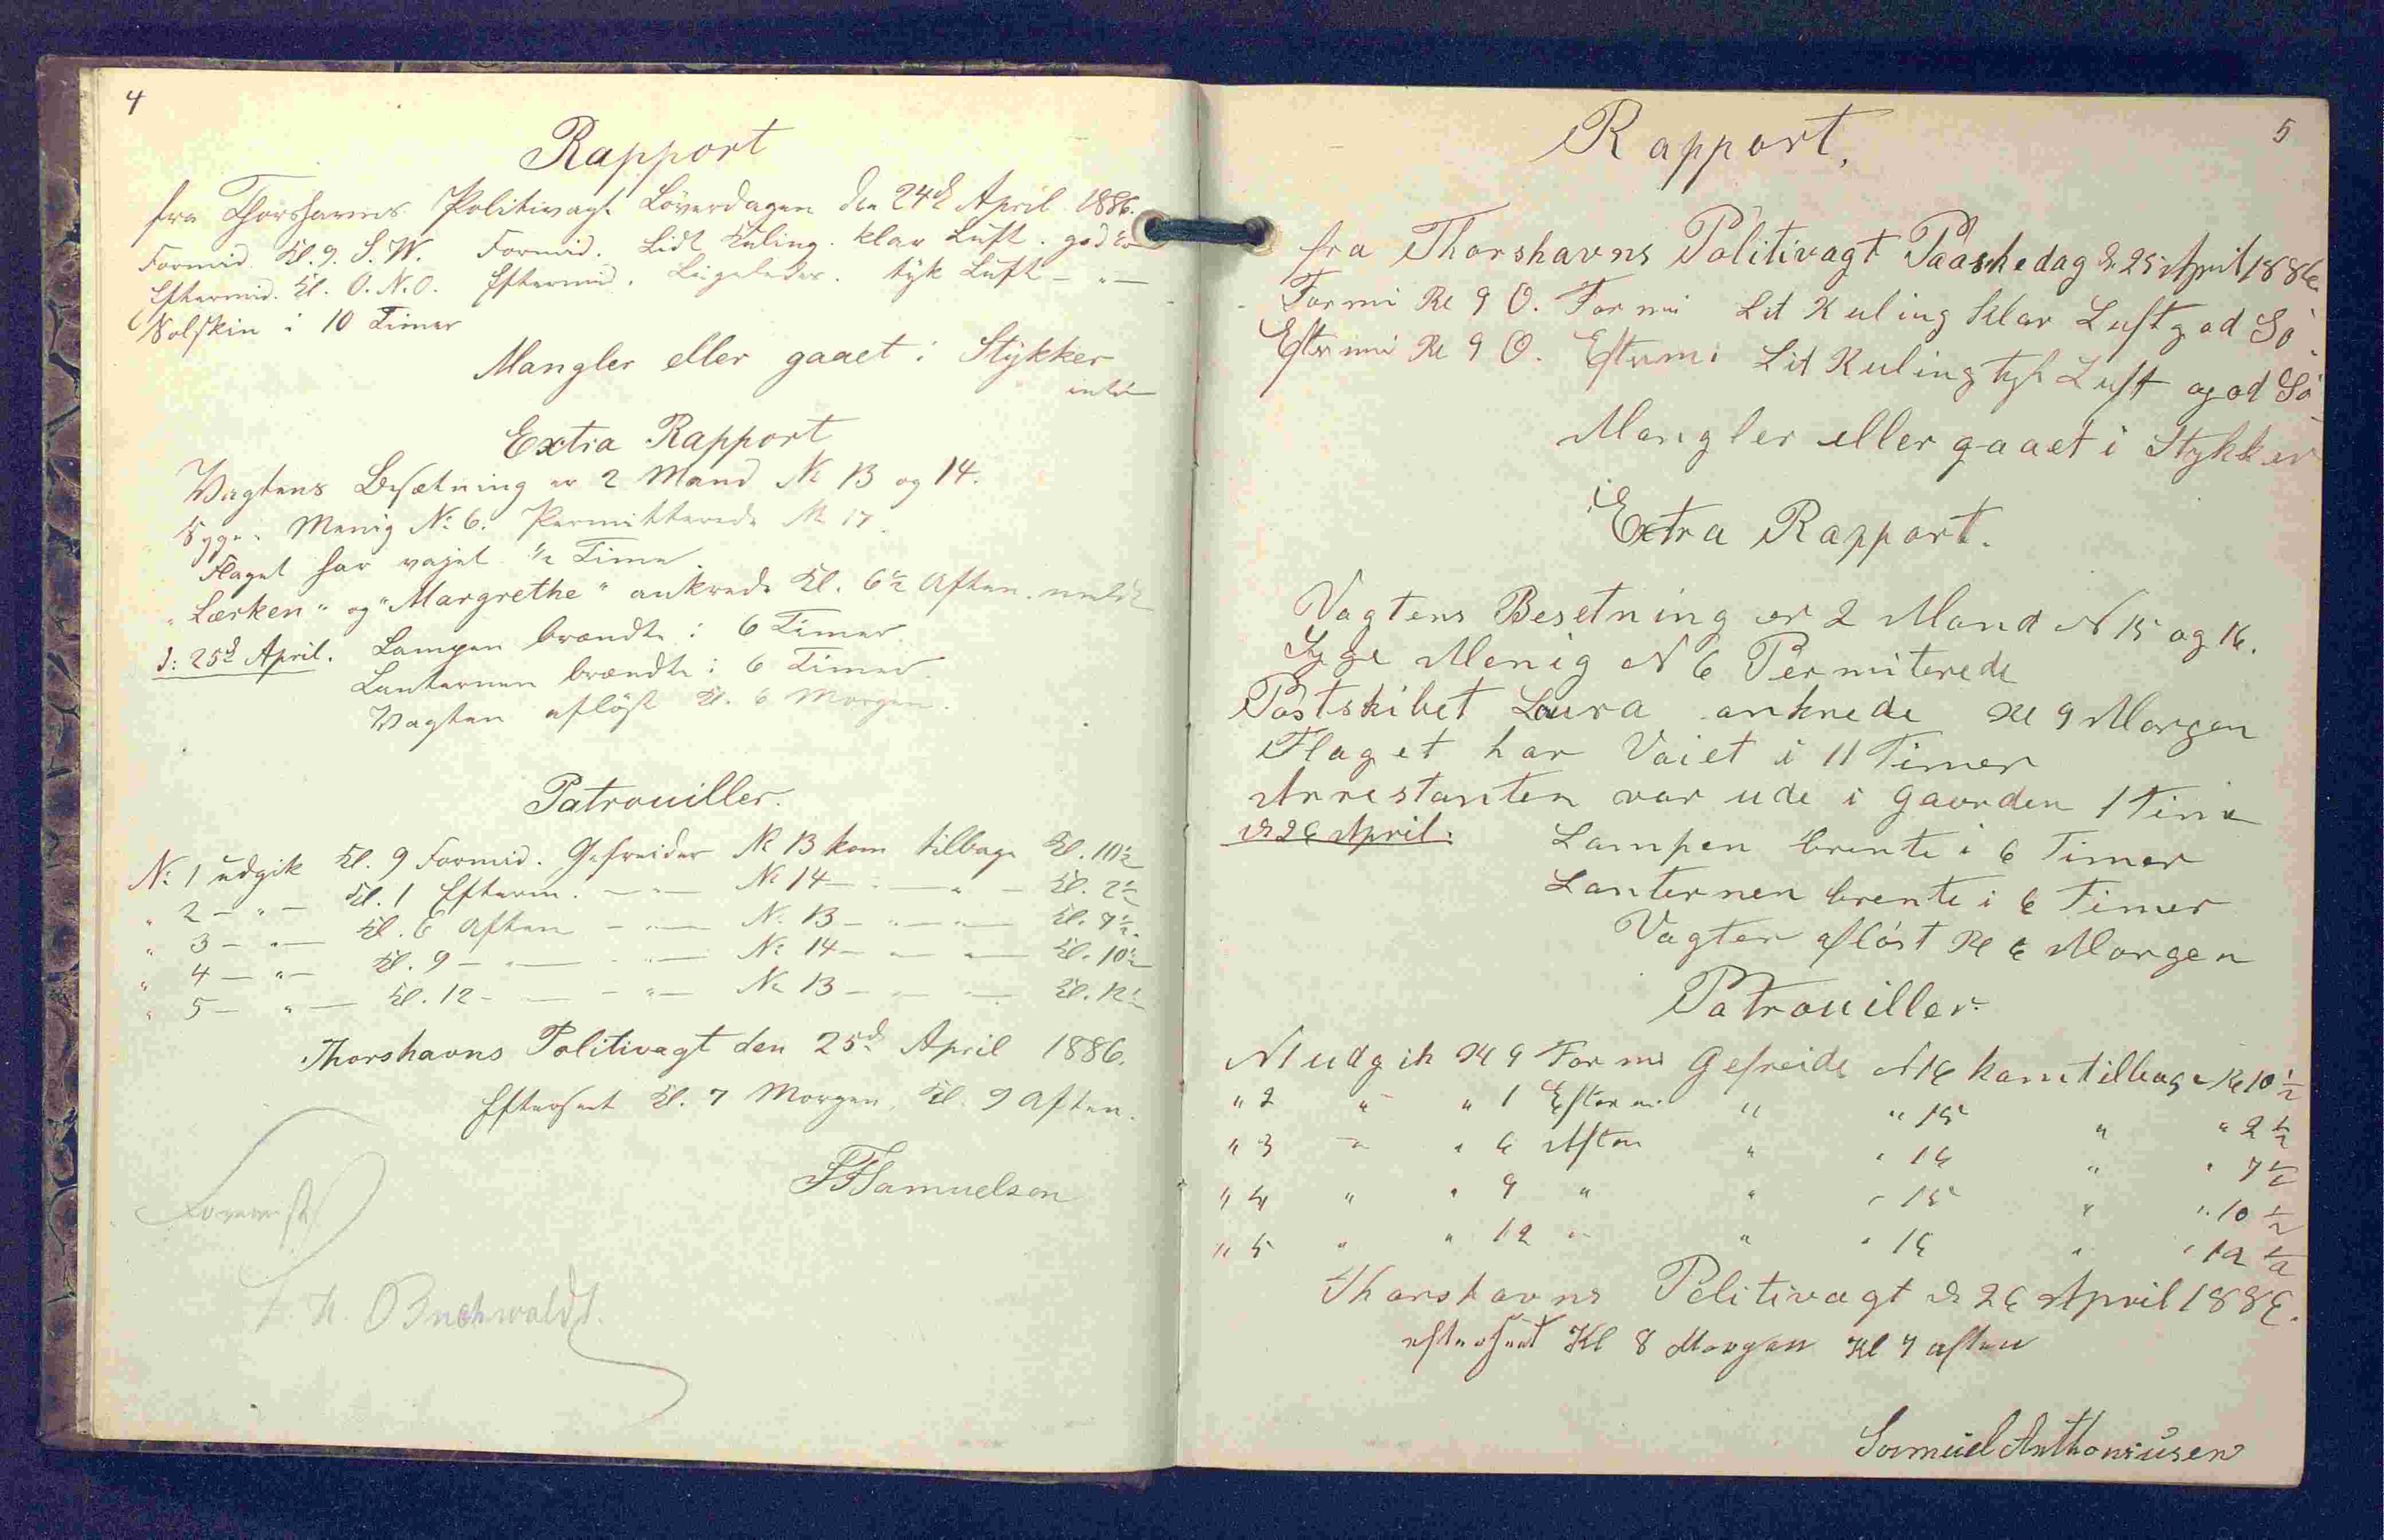 4
Rapport
fra Thorshavns Politivagt Löverdagen den 24d April 1886.
Formid Kl. 9. S. W. Formid. Lidt Kuling. klar Luft. god
Eftermid. Kl. O. N. O. Eftermid. Ligeledes. tyk Luft — " —
Solskin i 10 Timer
Mangler eller gaaet i Stykker
intet
Extra Rapport
Vagtens Besætning er 2 Mand No 13 og 14.
Syge: Menig No 6. Permitterede No 17.
Flaget har vajet ½ Time.
"Lærken" og "Margrethe" ankrede Kl. 6½ Aften.
d: 25d April. Lampen brændte i 6 Timer.
Lanternen brændte i 6 Timer.
Vagten aflöst Kl. 6 Morgen.
Patrouiller.
No 1 udgik Kl. 9 Formid. Gefreider No 13 kom tilbage Kl. 10½
" 2 — " — Kl. 1 Efterm. — " — No 14 — " — " — Kl. 2½
" 3 — " — Kl. 6 Aften — " — No 13 — " — " — Kl. 7½.
" 4 — " — Kl. 9 — " — — " — No 14 — " — " — Kl. 10½
" 5 — " — Kl. 12 — " — — " — No 13 — " — " — Kl. 12½
Thorshavns Politivagt den 25d April 1886.
Efterseet Kl. 7 Morgen, Kl. 9 Aften.
Samuelsen
Buchwaldt.
5
Rapport.
fra Thorshavns Politivagt Paaskedag d. 25 April 1886
Formi Kl 9 O. Formi Lit Kuling klar Luft god Sö
Eftermi Kl 9 O. Eftermi Lit Kuling tyk Luft og od Sö
Mangler eller gaaet i Stykker
Extra Rapport.
Vagtens Besetning er 2 Mand N 15 og 16.
Syge Menig N 6 Permiterede
Postskibet Laura ankrede Kl 9 Morgen
Flaget har Vaiet i 11 Timer
Arrestanten var ude i Gaarden 1 Time
d 26 April. Lampen brente i 6 Timer
Lanternen brente i 6 Timer
Vagten aflöst Kl 6 Morgen
Patrouiller.
N 1 udgik Kl 9 Formi Gefreide N 16 kom tilbage Kl 10½
" 2 " " 1 Eftermi " " 15 " " 2½
" 3 " " 6 Aften " " 16 " " 7½
" 4 " " 9 " " " 15 " " 10½
" 5 " " 12 " " " 16 " " 12½
Thorshavns Politivagt d 26 April 1886.
efterseet Kl 8 Morgen Kl 7 aften
Samuel Anthoniusen